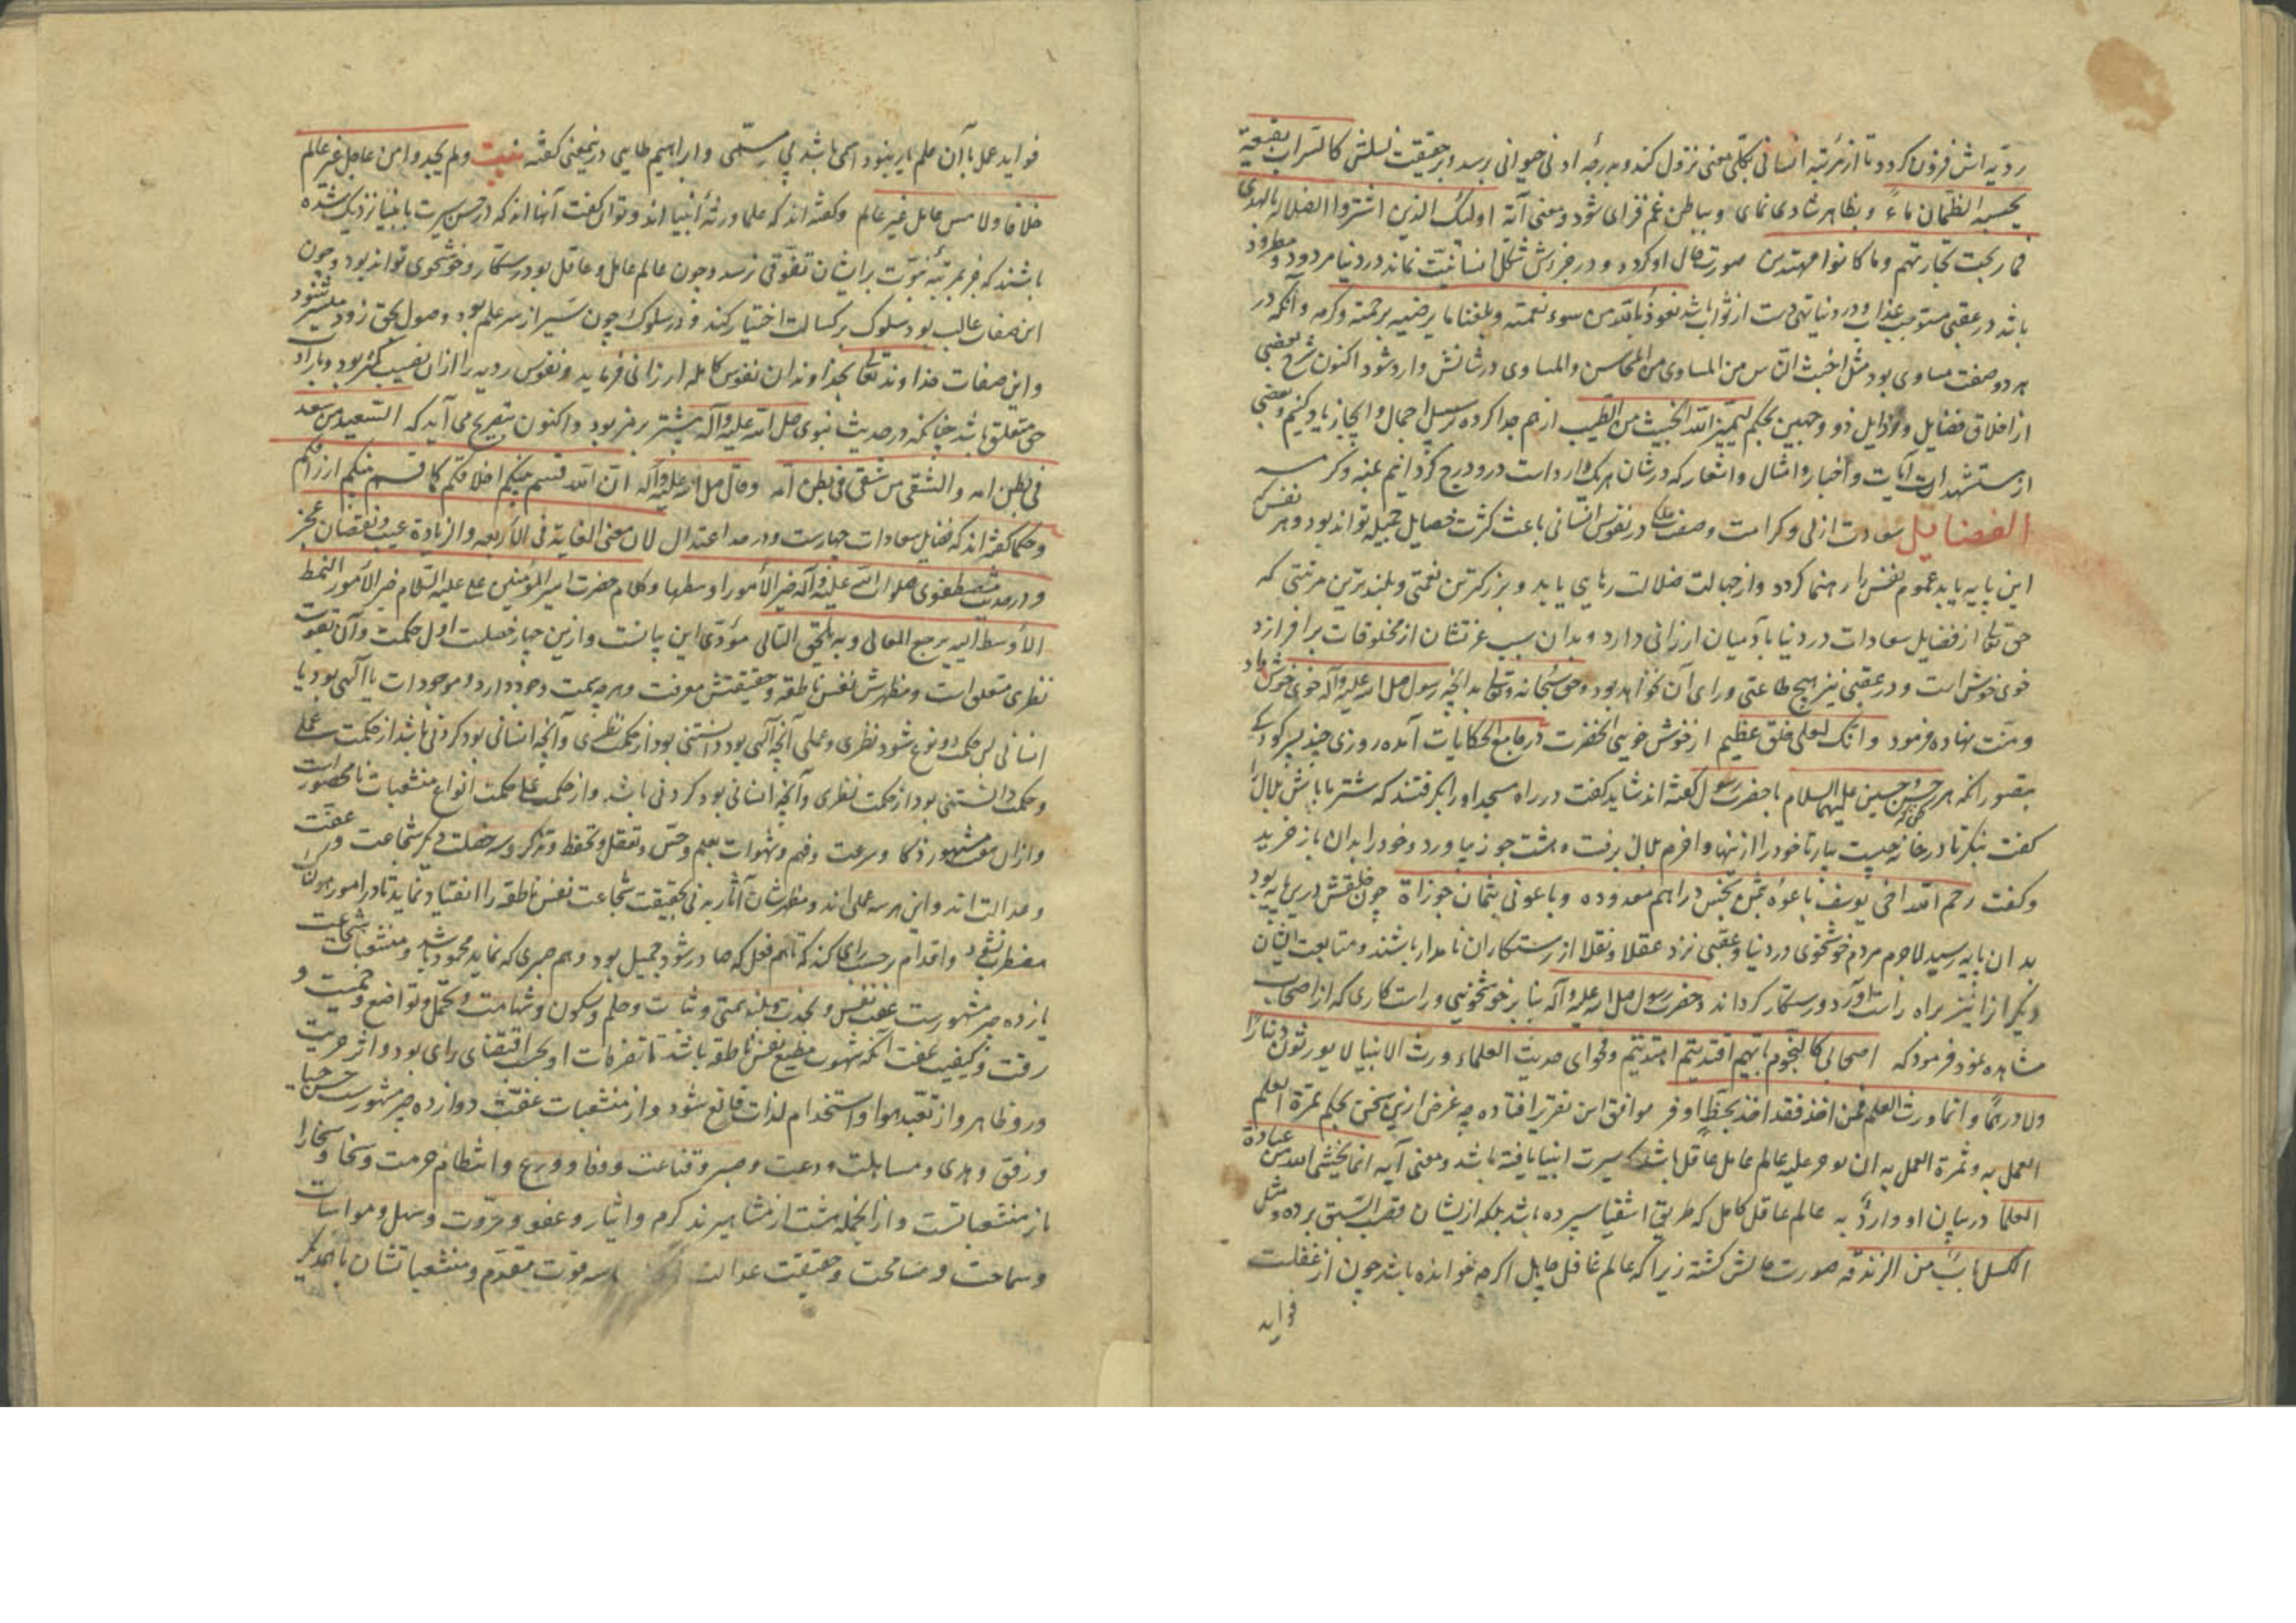 ردیه اش فزون کردد تا از مرتبه انسانی بکلی معنی نزول کند و بدرجه ادنی حیوانی برسد و بر حقیقت نسلش کالسراب بقیعة
یحسبه الظمان ماءً و بظاهر شادی نمای و بباطن غم فزای شود و معنی آیة اولئک الذین اشتروا الضلالة بالهدی
فما ربحت تجارتهم و ما کانوا مهتدین صورت حال او کردد و در خورش شکل انسانیت نماند در دنیا مردود و مطرود
باشد در عقبی مستوجب عذاب و در دنیا تهی دست از ثواب باشد نعوذ بالله من سوء نعمته و بلغنا ما یرضیه برحمته و کرمه و آنکه در
هر دو صفت مساوی بود مثل اخبث الناس من المساوی من المحاسن والمساوی در شانش وارد شود اکنون شرح بعضی
از اخلاق فضایل و رذایل ذو وجهین بحکم لیمیز الله الخبیث من الطیب از هم جدا کرده بر سبیل اجمال و ایجاز یاد کنیم و بعضی
از مستشهدات آیات و اخبار و امثال و اشعار که در شان هر یک وارد است درو درج کردانیم بمنه و کرمه
الفضایل سعادت ازلی و کرامت وصفت در نفوس انسانی باعث کثرت خصایل جمیله تواند بود و هر نفس که
این پایه یابد عموم نفس را رهنما کردد و از جهالت ضلالت رهایی یابد و بزرکترین نعمتی و بلندترین مرتبتی که
حق تعالی از فضایل سعادات در دنیا بآدمیان ارزانی دارد و بدان سبب عزتشان از مخلوقات برافرازد
خوی خوش است و در عقبی نیز هیچ طاعتی ورای آن نخواهد بود و حق سبحانه و تعالی بدانچه رسول صلی الله علیه و آله خوی خوش داد
و منت نهاده فرمود وانک لعلی خلق عظیم از خوش خویی آنحضرت در جامع الحکایات آمده روزی چند پسر کودک
بتصور آنکه هر حسن و حسین علیهما السلام با حضرت رسول گفته اند شاید کفت در راه مسجد او را بکرفتند که شتر ما باش بلال را
کفت بنکر تا در خانه چیست بیار تا خود را از اینها وا خرم بلال برفت و هشت جوز بیاورد و خود را بدان باز خرید
و کفت رحم الله اخی یوسف باعوه بثمن بخس دراهم معدوده و باعونی بثمان جوزاة چون خلقش درین پایه بود
بدان پایه رسید لاجرم مردم خوشخوی در دنیا و عقبی نزد عقلا و نقلا از رستکاران نامدار باشند و متابعت ایشان
دیکر از ا نیز براه راست آورد و رستکار کرداند و حضرت رسول صلی الله علیه و آله بنا بر خوشخویی و راست کاری که از اصحاب
مشاهده نمود فرمود که اصحابی کالنجوم بایهم اقتدیتم اهتدیتم و فحوای حدیث العلماء ورثة الانبیا لا یورثون دینارا
ولا درهمًا وانما ورث العلم فمن اخذ فقد اخذ بحظ اوفر موافق این تقریر افتاده چه غرض ازین سخن بحکم ثمرة العلم
العمل به و ثمرة العمل به ان یوجر علیه عالم عامل عاقل باشد که سیرت انبیا یافته باشد و معنی آیه انما یخشی الله من عباده
العلما در بیان او وارد نه عالم عاقل کامل که طریق اشقیا سپرده باشد بلکه ازیشان قصب السبق برده و مثل
الکسل باب من الزندقه صورت حالش کشته زیرا که عالم غافل جاهل اکرچه خوانده باشد چون از غفلت
فواید
فواید عمل با آن علم یار نبود اسمی باشد بی مسمی و ابراهیم طایی درینمعنی کفته بیت ولم یجدوا من عامل غیر عالم
خلاقا ولا من عامل غیر عالم و کفته اند که علما ورثة انبیا اند و توان کفت آنها اند که در حسن سیرت بانبیا نزدیک شده
باشند که جز بمرتبه نبوت بر ایشان تفوقی نرسد و چون عالم عامل و عاقل بود رستکار و خوشخوی تواند بود و چون
این صفات غالب بود سلوک بر کسالت اختیار کند و در سلوک چون سیر از سر علم بود وصول بحق زود میسر شود
و این صفات خداوند تعالی بخداوندان نفوس کامله ارزانی فرماید و نفوس ردیه را از ان نصیب کمتر بود و بارادت
حق متعلق باشد چنانکه در حدیث نبوی صلی الله علیه و آله مبشتر بر خبر بود و اکنون بتقریح می آید که السعید من سعد
فی بطن امه والشقی من شقی فی بطن امه وقال صلی الله علیه و آله ان الله قسم بینکم اخلاقکم کما قسم بینکم ارزاقکم
و حکما کفته اند که فضایل سعادات چهارست و در حد اعتدال لان معنی الغایة فی الاربعه والزیادة عیب ونقصان عجز
و در حدیث مصطفوی صلوات الله علیه و آله خیر الامور اوسطها و کلام حضرت امیر المؤمنین علی علیه السلام خیر الامور النمط
الاوسط الیه یرجع الغالی و به یلحق التالی مؤدی این بیانست و ازین چهار خصلت اول حکمت و آن بقوت
نظری متعلق است و مظهرش نفس ناطقه و حقیقتش معرفت و هر چه سمت وجود دارد و موجودات یا الهی بود یا
انسانی پس حکمت دو نوع شود نظری و عملی آنچه الهی بود دانستنی بود از حکمت نظری و آنچه انسانی بود کردنی باشد از حکمت عملی
و حکمت دانستنی بود از حکمت نظری و آنچه انسانی بود کردنی باشد و از حکمت علی حکمت انواع منشعبات نامحصور است
و از ان هفت مشهور ذکا و سرعت و فهم و شهوات بعلم و حس و تعقل و تحفظ و تذکر و سه خصلت دیکر شجاعت و عفت
و عدالت اند و این هر سه عملی اند و مظهرشان آثار بدنی بحقیقت شجاعت نفس ناطقه را انقیاد نماید تا در امور هولناک
مضطرب نشود و اقدام بر حسب رای کند که تا هم فعل که صادر شود جمیل بود و هم صبری که نماید محمود باشد و منشعبات شجاعت
یازده چیز مشهورست عفت نفس و نجدت و بلند همتی و ثبات و حلم و سکون و شهامت و تحمل و تواضع و حمیت و
رقت و کیفیت عفت آنکه شهوت مطیع نفس ناطقه باشد تا تصرفات او بحسب اقتضای رای بود و اثر حریت
درو ظاهر و از تعبد هوا و استخدام لذات قانع شود و از منشعبات عفت دوازده چیز مشهورست حیا حسن
و رفق و هدی و مسالمت و دعت و صبر و قناعت و وقار و ورع و انتظام حرمت و سخا و سخا را
باز منشعباتست و از انجمله هشت از مشاهیرند کرم و ایثار و عفو و مروت و نیل و مواسات
و سماحت و مسامحت و حقیقت عدالت سه قوت مقدم و منشعباتشان با همدیکر